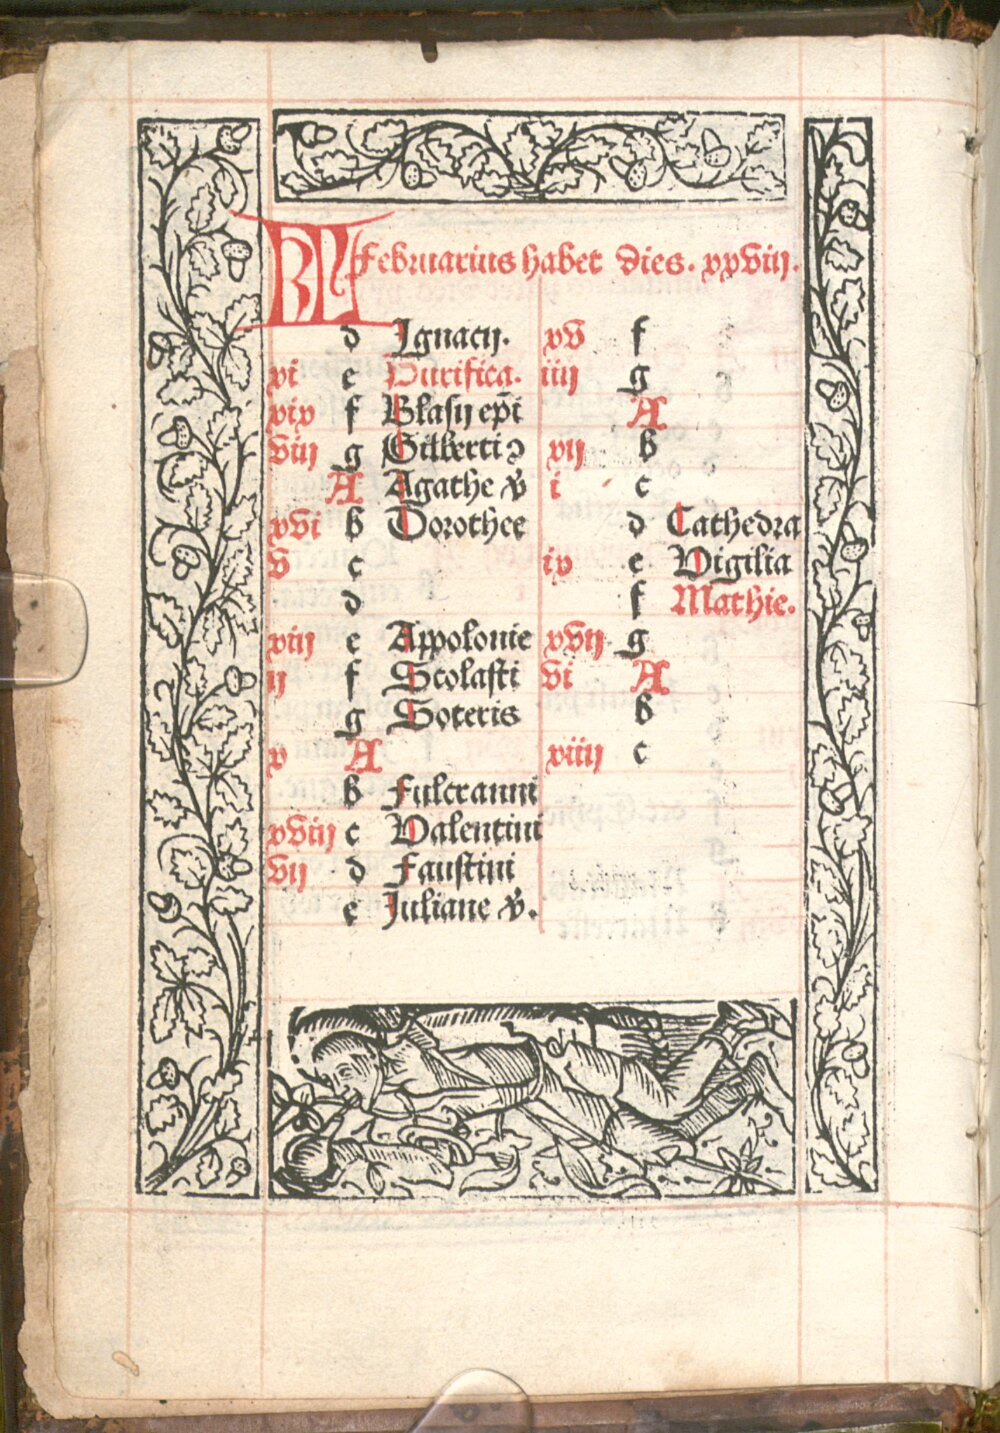 KL februarius habet dies. xxviij.
d Ignacij.
vi e Purifica.
xix f Blasij ep̄i
viij g Gilberti ꝛ
A Agathe v̄
xvi b Dorothee
v c
d
xiij e Appolonie
ij f Scolasti
g Soteris
x A
b fulcranni
xviij c Valentini
vij d Faustini
e Juliane v̄.
xv f
iiij g
A
xij b
i c
d Cathedra
ix e Vigilia
f Mathie.
xvij g
vi A
b
xiiij c